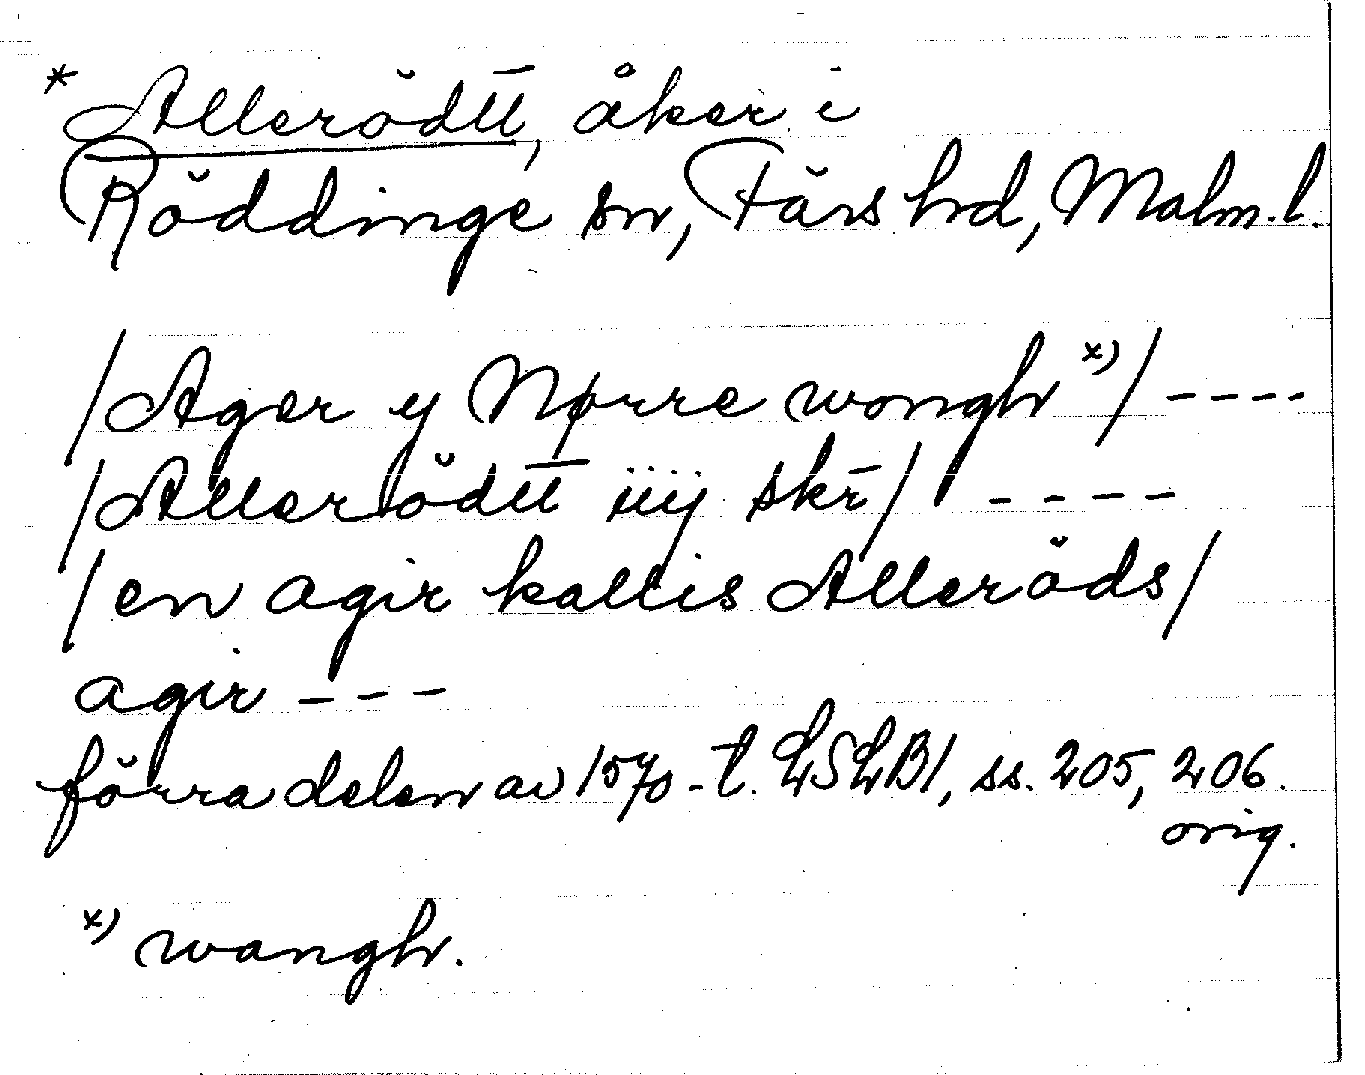 * Allerödtt̄, åker i
Röddinge sn, Färs hrd, Malm. l.
/Ager y Nørre wongh *)/ ----
/Allerödtt̄ iiij skr̄/ ----
/en agir kallis Alleröds/
agir ---
förra delen av 1570-t. LSLB1, ss. 205, 206.
orig.
*) wangh.